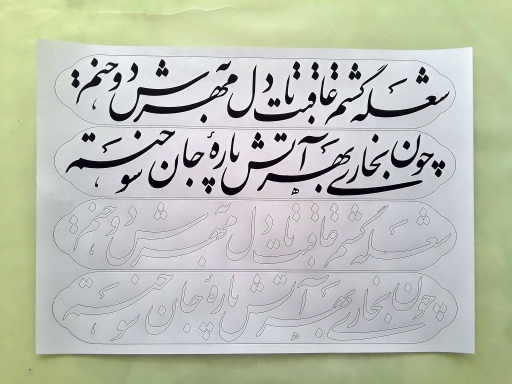 شعله گشتم عاقبت تا دل به مهرش دوختم
چون بخاری بهر آتش پارهٔ جان سوختم
شعله گشتم عاقبت تا دل به مهرش دوختم
چون بخاری بهر آتش پارهٔ جان سوختم